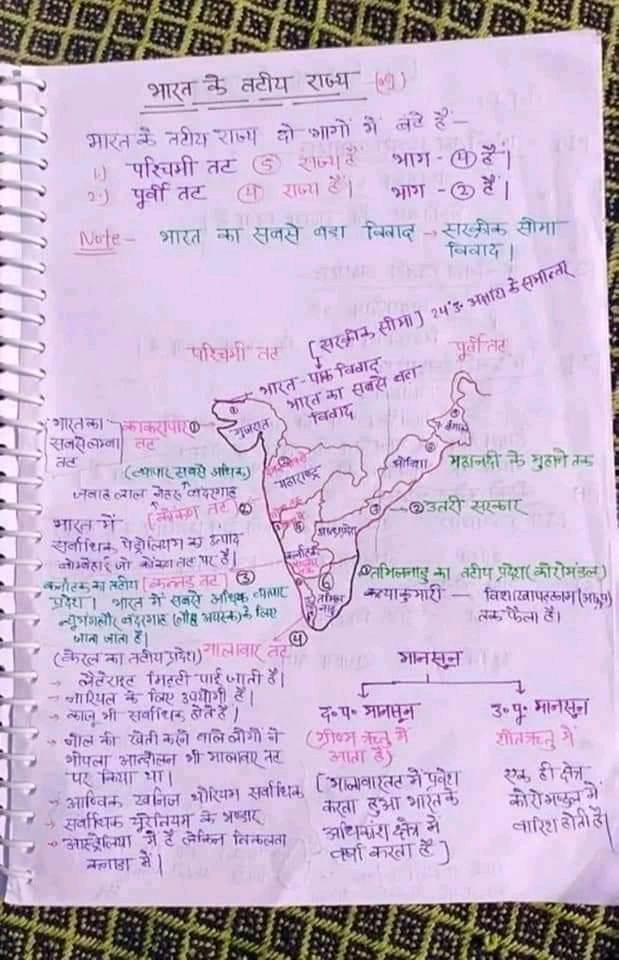 भारत के तटीय राज्य
भारत के तटीय राज्य दो भागों में बंटे हैं–
1.) पश्चिमी तट ⑤ राज्य हैं भाग - ④ हैं।
2.) पूर्वी तट ④ राज्य हैं। भाग - ② हैं।
Note – भारत का सबसे बड़ा विवाद → सरक्रीक सीमा
विवाद।
[सरक्रीक सीमा] 24°उ० अक्षांश के समान्तर
पश्चिमी तट
पूर्वी तट
भारत-पाक विवाद
भारत का सबसे बड़ा
विवाद
भारत का
सबसे लम्बा
तट
काकरापार ①
तट
गुजरात
बंगाल
(व्यापार सबसे अधिक)
महाराष्ट्र
ओडिशा
महानदी के मुहाने तक
जवाहर लाल नेहरू बंदरगाह
[कोंकण तट] ②
②उत्तरी सरकार
भारत में
सर्वाधिक पेट्रोलियम का उत्पाद
बोम्बेहाई जो कोंकण तट पर है।
आन्ध्रप्रदेश
कर्नाटक
कर्नाटक का तटीय [कन्नड़ तट] ③
प्रदेश। भारत में सबसे अधिक व्यापार
न्यूमंगलौर बंदरगाह (लौह अयस्क) के लिए
जाना जाता है।
तमिल
नाडु
①तमिलनाडु का तटीय प्रदेश (कोरोमंडल)
कन्याकुमारी — विशाखापट्टनम (आंध्र)
तक फैला है।
(केरल का तटीय प्रदेश) मालावार तट ④
→ लैटेराइट मिट्टी पाई जाती है।
→ नारियल के लिए उपयोगी है।
→ काजू भी सर्वाधिक होते हैं।
→ नील की खेती करने वाले लोगों ने
मोपला आन्दोलन भी मालाबार तट
पर किया था।
→ आण्विक खनिज थोरियम सर्वाधिक
→ सर्वाधिक यूरेनियम के भण्डार
→ आस्ट्रेलिया में है लेकिन निकलता
कनाडा में।
मानसून
द० प० मानसून
(ग्रीष्म ऋतु में
आता है)
[मालाबार तट में प्रवेश
करता हुआ भारत के
अधिकांश क्षेत्र में
वर्षा करता है]
उ० पू० मानसून
शीतऋतु में
एक ही क्षेत्र
कोरोमण्डल में
बारिश होती है।